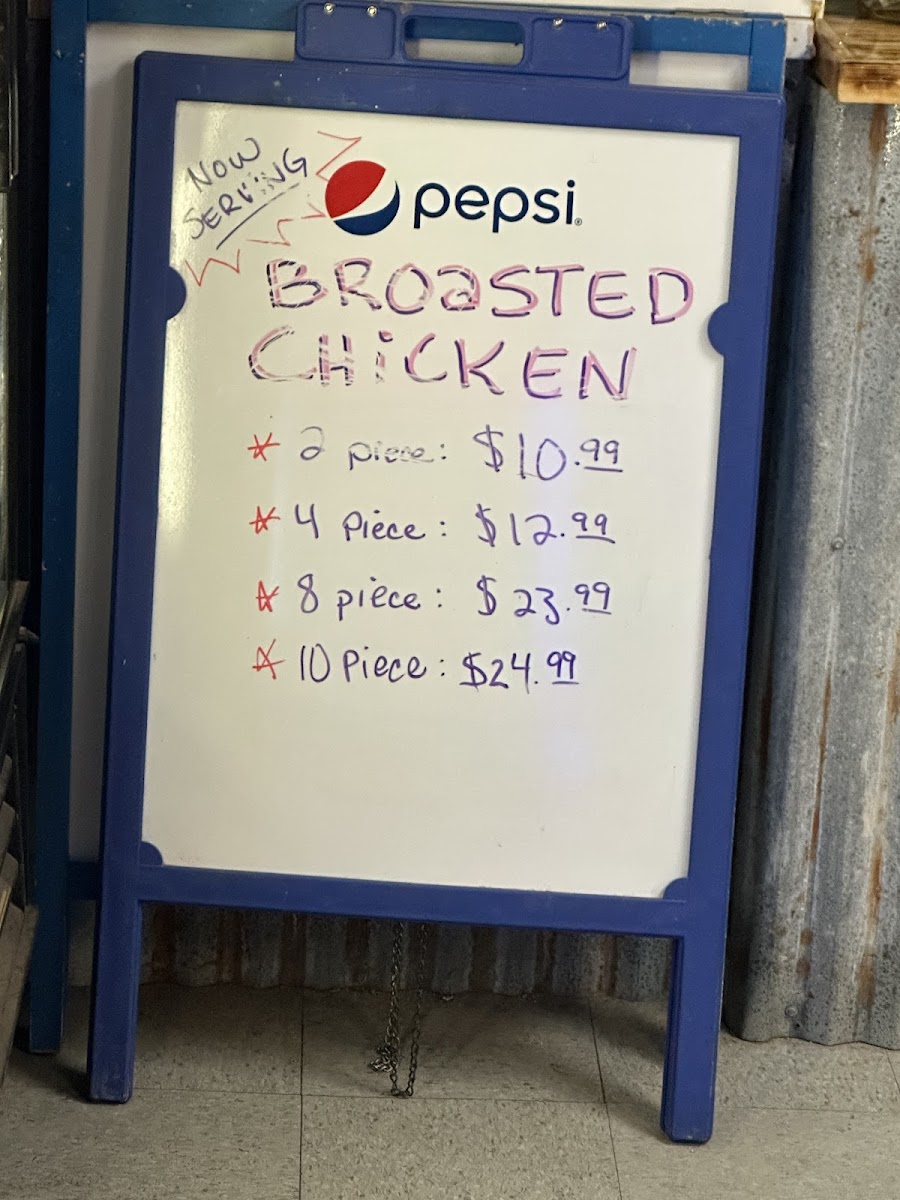 NOW
SERVING
pepsi
BROaSTED
CHiCKEN
* 2 piece: $10.99
* 4 Piece: $12.99
* 8 piece: $23.99
* 10 Piece: $24.99